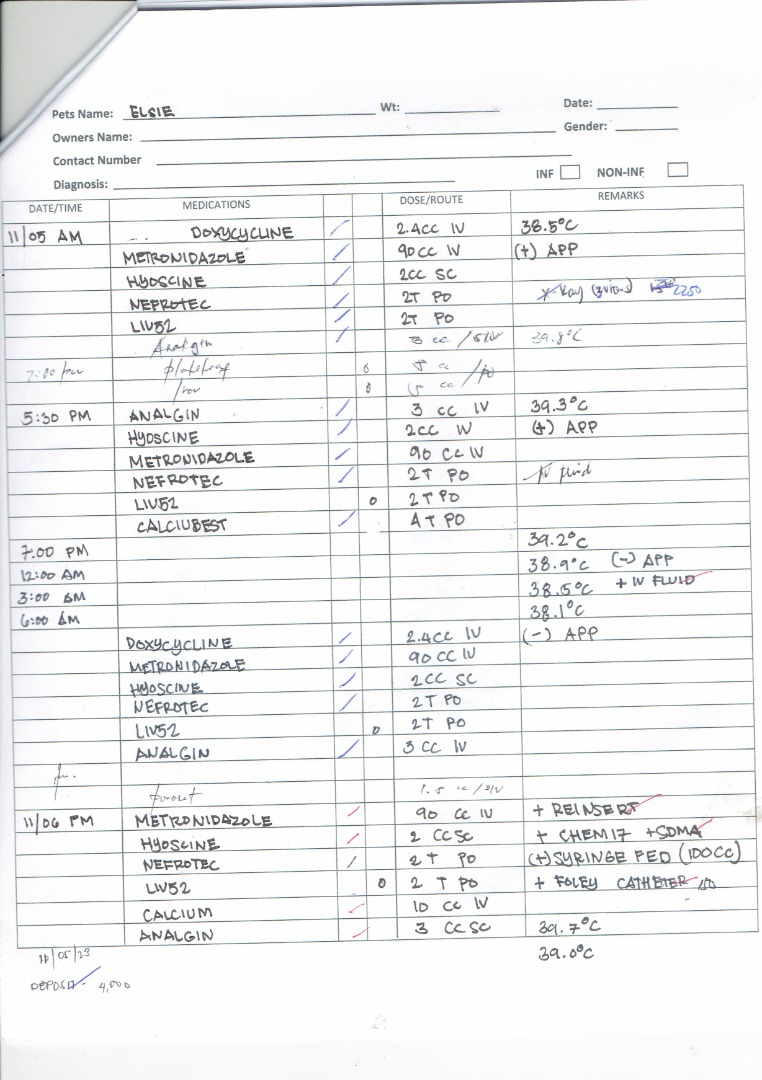 Pets Name: ELSIE Wt: Date:
Owners Name: Gender:
Contact Number
Diagnosis: INF NON-INF
DATE/TIME MEDICATIONS DOSE/ROUTE REMARKS
11/05 AM DOXYCYCLINE 2.4CC IV 38.5°C
METRONIDAZOLE 90CC IV (+) APP
HYOSCINE 2CC SC
NEFROTEC 2T PO X-Ray 2250
LIV52 2T PO
Analgin 3 cc 39.8°C
7:00 pm
5:30 PM ANALGIN 3 CC IV 39.3°C
HYOSCINE 2CC IV (+) APP
METRONIDAZOLE 90 CC IV
NEFROTEC 2T PO IV fluid
LIV52 0 2T PO
CALCIUBEST 4T PO
39.2°C
7:00 PM 38.9°C (-) APP
12:00 AM 38.5°C + IV FLUID
3:00 AM 38.1°C
6:00 AM
DOXYCYCLINE 2.4CC IV (-) APP
METRONIDAZOLE 90 CC IV
HYOSCINE 2CC SC
NEFROTEC 2T PO
LIV52 0 2T PO
ANALGIN 3 CC IV
11/06 PM METRONIDAZOLE 90 CC IV + REINSERT
HYOSCINE 2 CC SC + CHEM 17 + SDMA
NEFROTEC 2T PO (+) SYRINGE FED (100CC)
LIV52 0 2 T PO + FOLEY CATHETER
CALCIUM 10 CC IV
ANALGIN 3 CC SC 39.7°C
11/05/23 39.0°C
DEPOSIT - 4,000